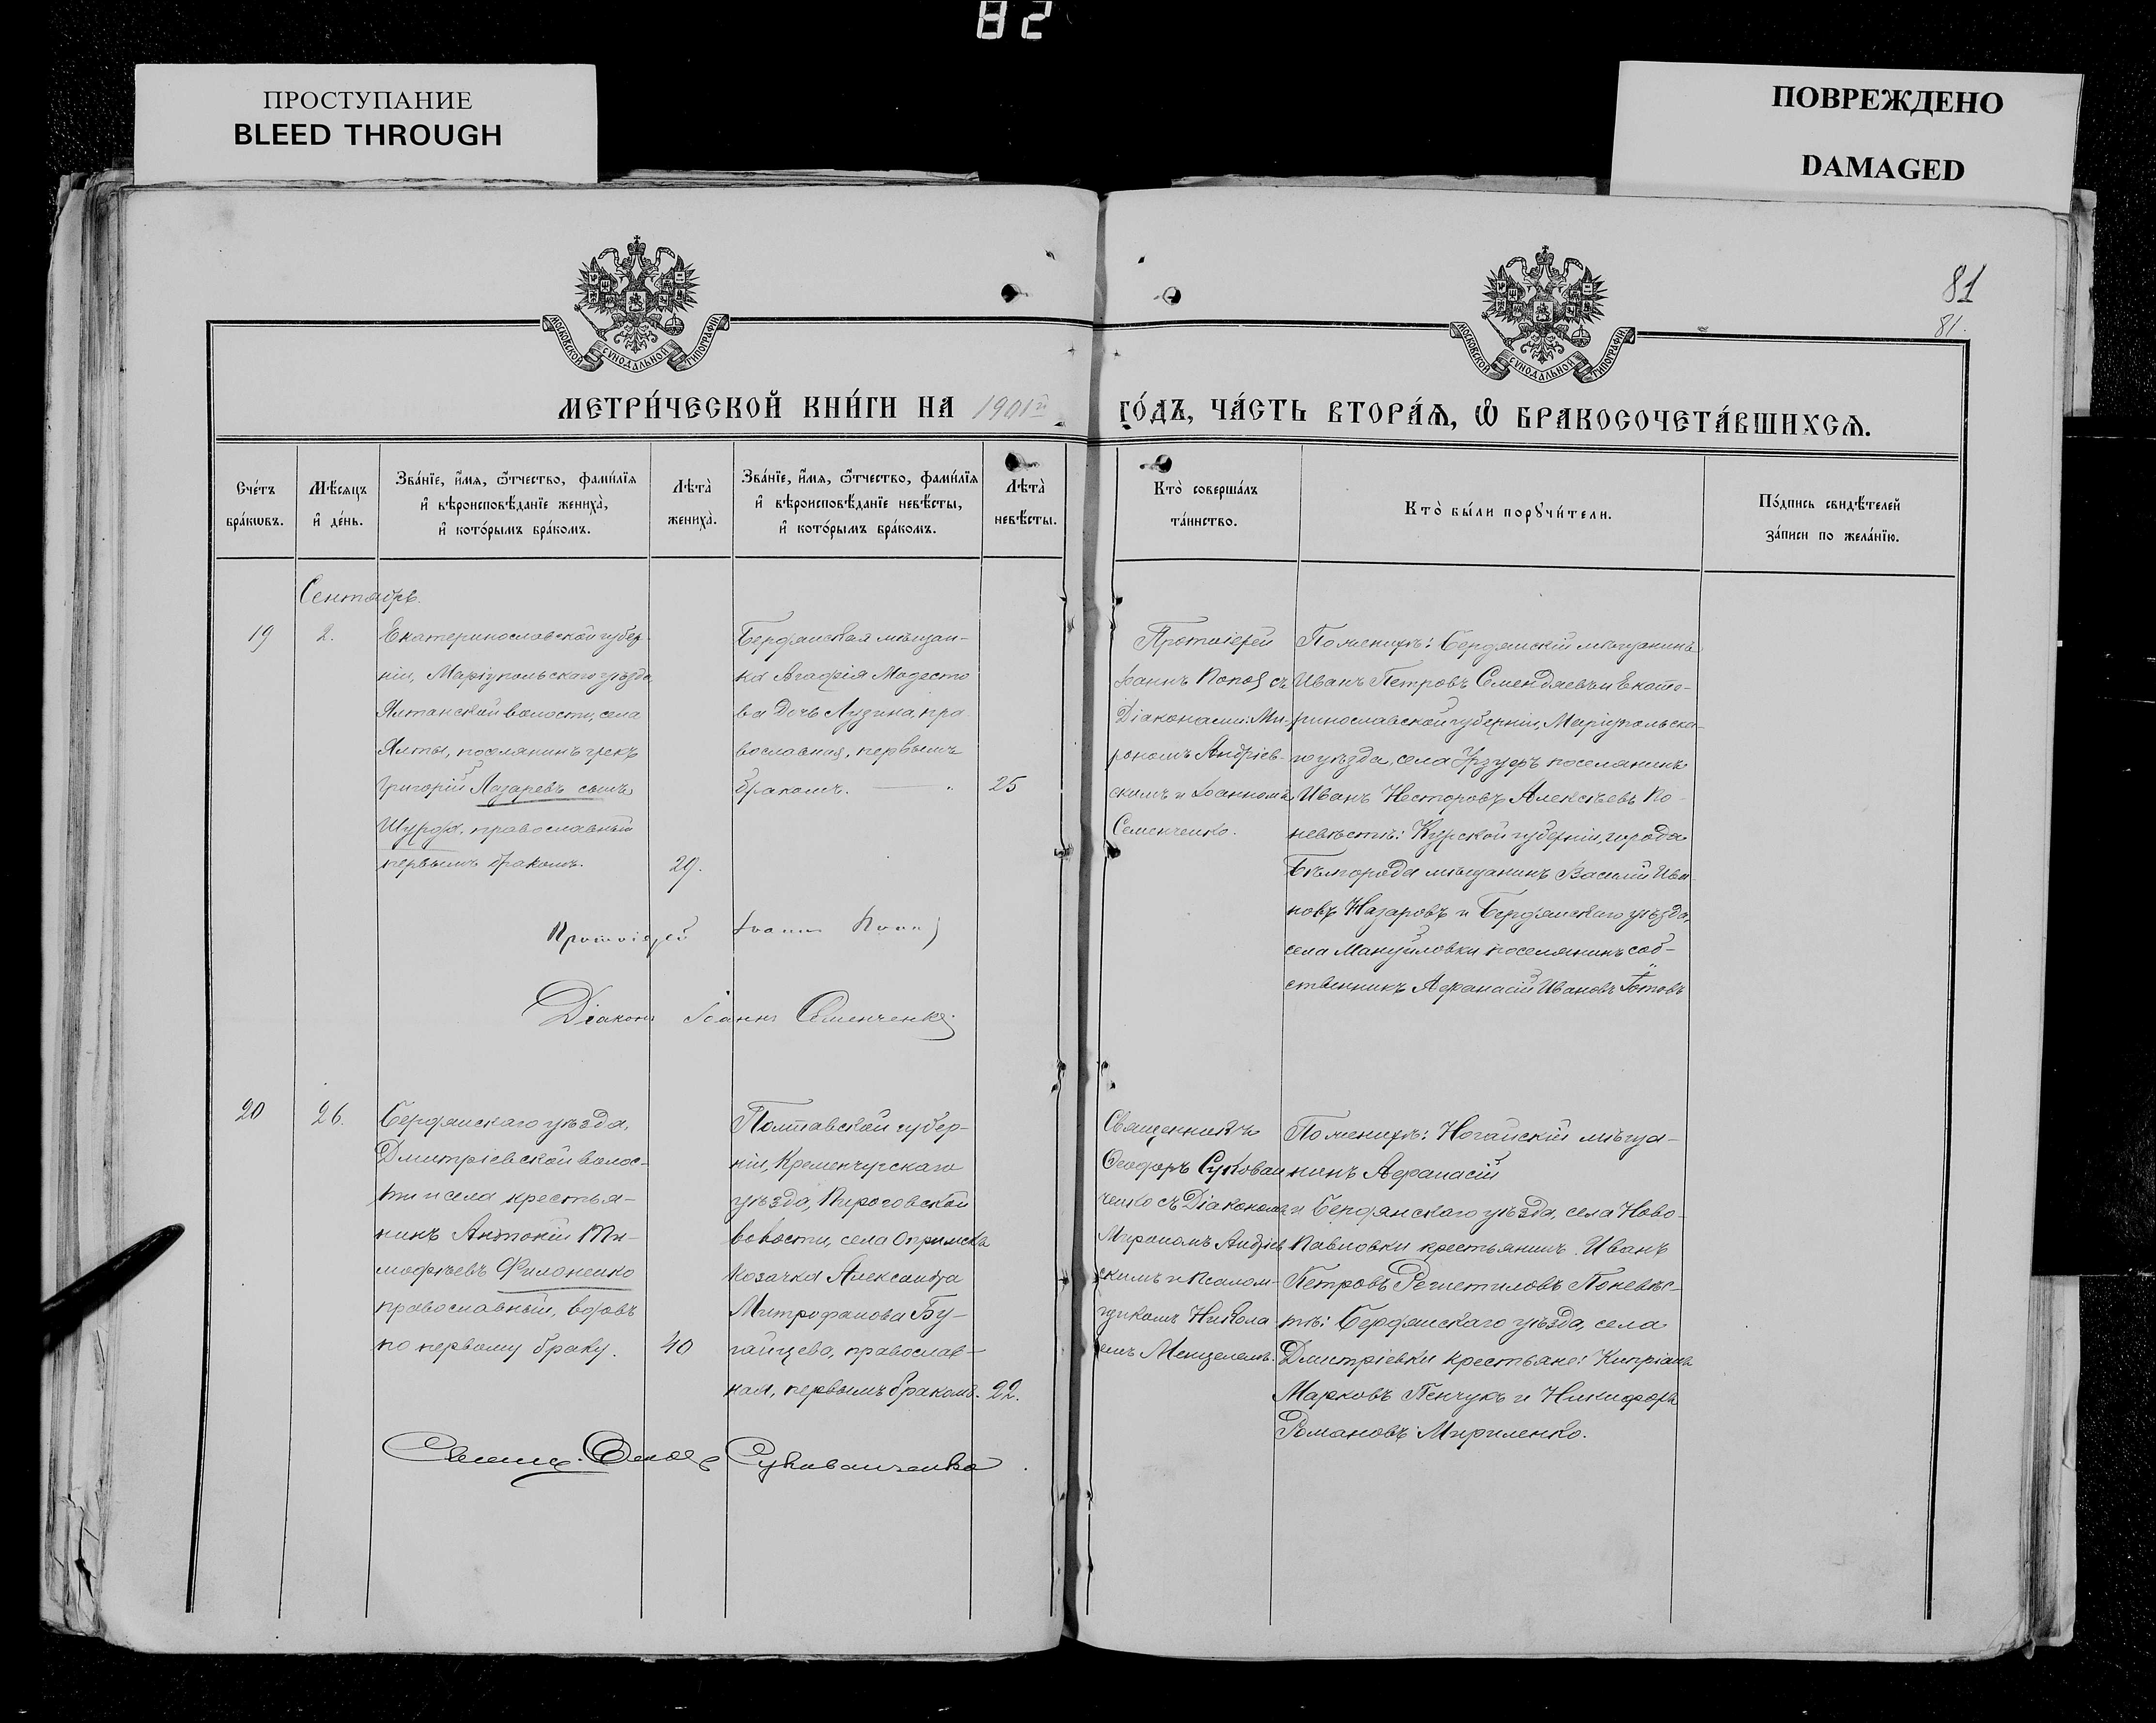 82
ПРОСТУПАНИЕ
BLEED THROUGH
ПОВРЕЖДЕНО
DAMAGED
МОСКОВСКОЙ СѴНОДАЛЬНОЙ ТИПОГРАФІИ
МОСКОВСКОЙ СѴНОДАЛЬНОЙ ТИПОГРАФІИ
81
81.
МЕТРИ́ЧЕСКОЙ КНИ́ГИ НА 1901й
ГО́ДЪ, ЧА́СТЬ ВТОРА́Ѧ, Ѽ БРАКОСОЧЕТА́ВШИХСѦ.
Сче́тъ
бра́кѡвъ.
Мѣ́сяцъ
и҆ де́нь.
Зва́нїе, и҆́мѧ, ѻ҆́тчество, фами́лїѧ
и҆ вѣроисповѣ́данїе жениха̀,
и҆ кото́рымъ бра́комъ.
Лѣта̀
жениха̀.
Зва́нїе, и҆́мѧ, ѻ҆́тчество, фами́лїѧ
и҆ вѣроисповѣ́данїе невѣ́сты,
и҆ кото́рымъ бра́комъ.
Лѣта̀
невѣ́сты.
Кто̀ соверша́лъ
та́инство.
Кто̀ бы́ли порꙋчи́тели.
По́дпись свидѣ́телей
за́писи по жела́нїю.
Сентябрь.
19
2.
Екатеринославской губер-
ніи, Маріупольскаго уѣзда
Ялтанской волости, села
Ялты, поселянинъ грекъ
Григорій Лазаревъ сынъ
Шурда, православный
первымъ бракомъ.
29.
Бердянская мѣщан-
ка Агафія Модесто
ва дочь Лузина, пра
вославная, первымъ
бракомъ.
25
Протоіерей
Іоаннъ Попов съ
Діаконами: Ми-
рономъ Андріев-
скимъ и Іоанномъ
Семенченко.
По женихѣ: Бердянскій мѣщанинъ
Иванъ Петровъ Семендяевъ и Екате-
ринославской губерніи, Маріупольска-
го уѣзда, села Урзуфъ поселянинъ
Иванъ Несторовъ Алексѣевъ По
невѣстѣ: Курской губерніи, города
Бѣлгорода мѣщанинъ Василій Ива-
новъ Назаровъ и Бердянскаго уѣзда,
села Мануйловки поселянинъ соб-
ственникъ Афанасій Ивановъ
Протоіерей Іоаннъ Попов
Діаконъ Іоаннъ Семенченко
20
26.
Бердянскаго уѣзда,
Дмитріевской волос-
ти и села крестья-
нинъ Антоній Ти-
мофѣевъ Филоненко
православный, вдовъ
по первому браку.
40
Полтавской губер-
ніи, Кременчугскаго
уѣзда, Пироговской
волости, села
козачка Александра
Митрофанова Бу-
гайцева, православ-
ная, первымъ бракомъ.
22.
Священникъ
Ѳеодоръ Сукован
ченко съ Діакономъ
Мирономъ Андріев
скимъ и Псалом-
щикомъ Никола
емъ
По женихѣ: Ногайскій мѣща-
нинъ Афанасій
и Бердянскаго уѣзда, села Ново-
Павловки крестьянинъ Иванъ
Петровъ Решетиловъ По невѣс-
тѣ: Бердянскаго уѣзда, села
Дмитріевки крестьяне: Кипріанъ
Марковъ Пенчукъ и Никифоръ
Романовъ Мириленко.
Свящ. Ѳеод Сукованченко